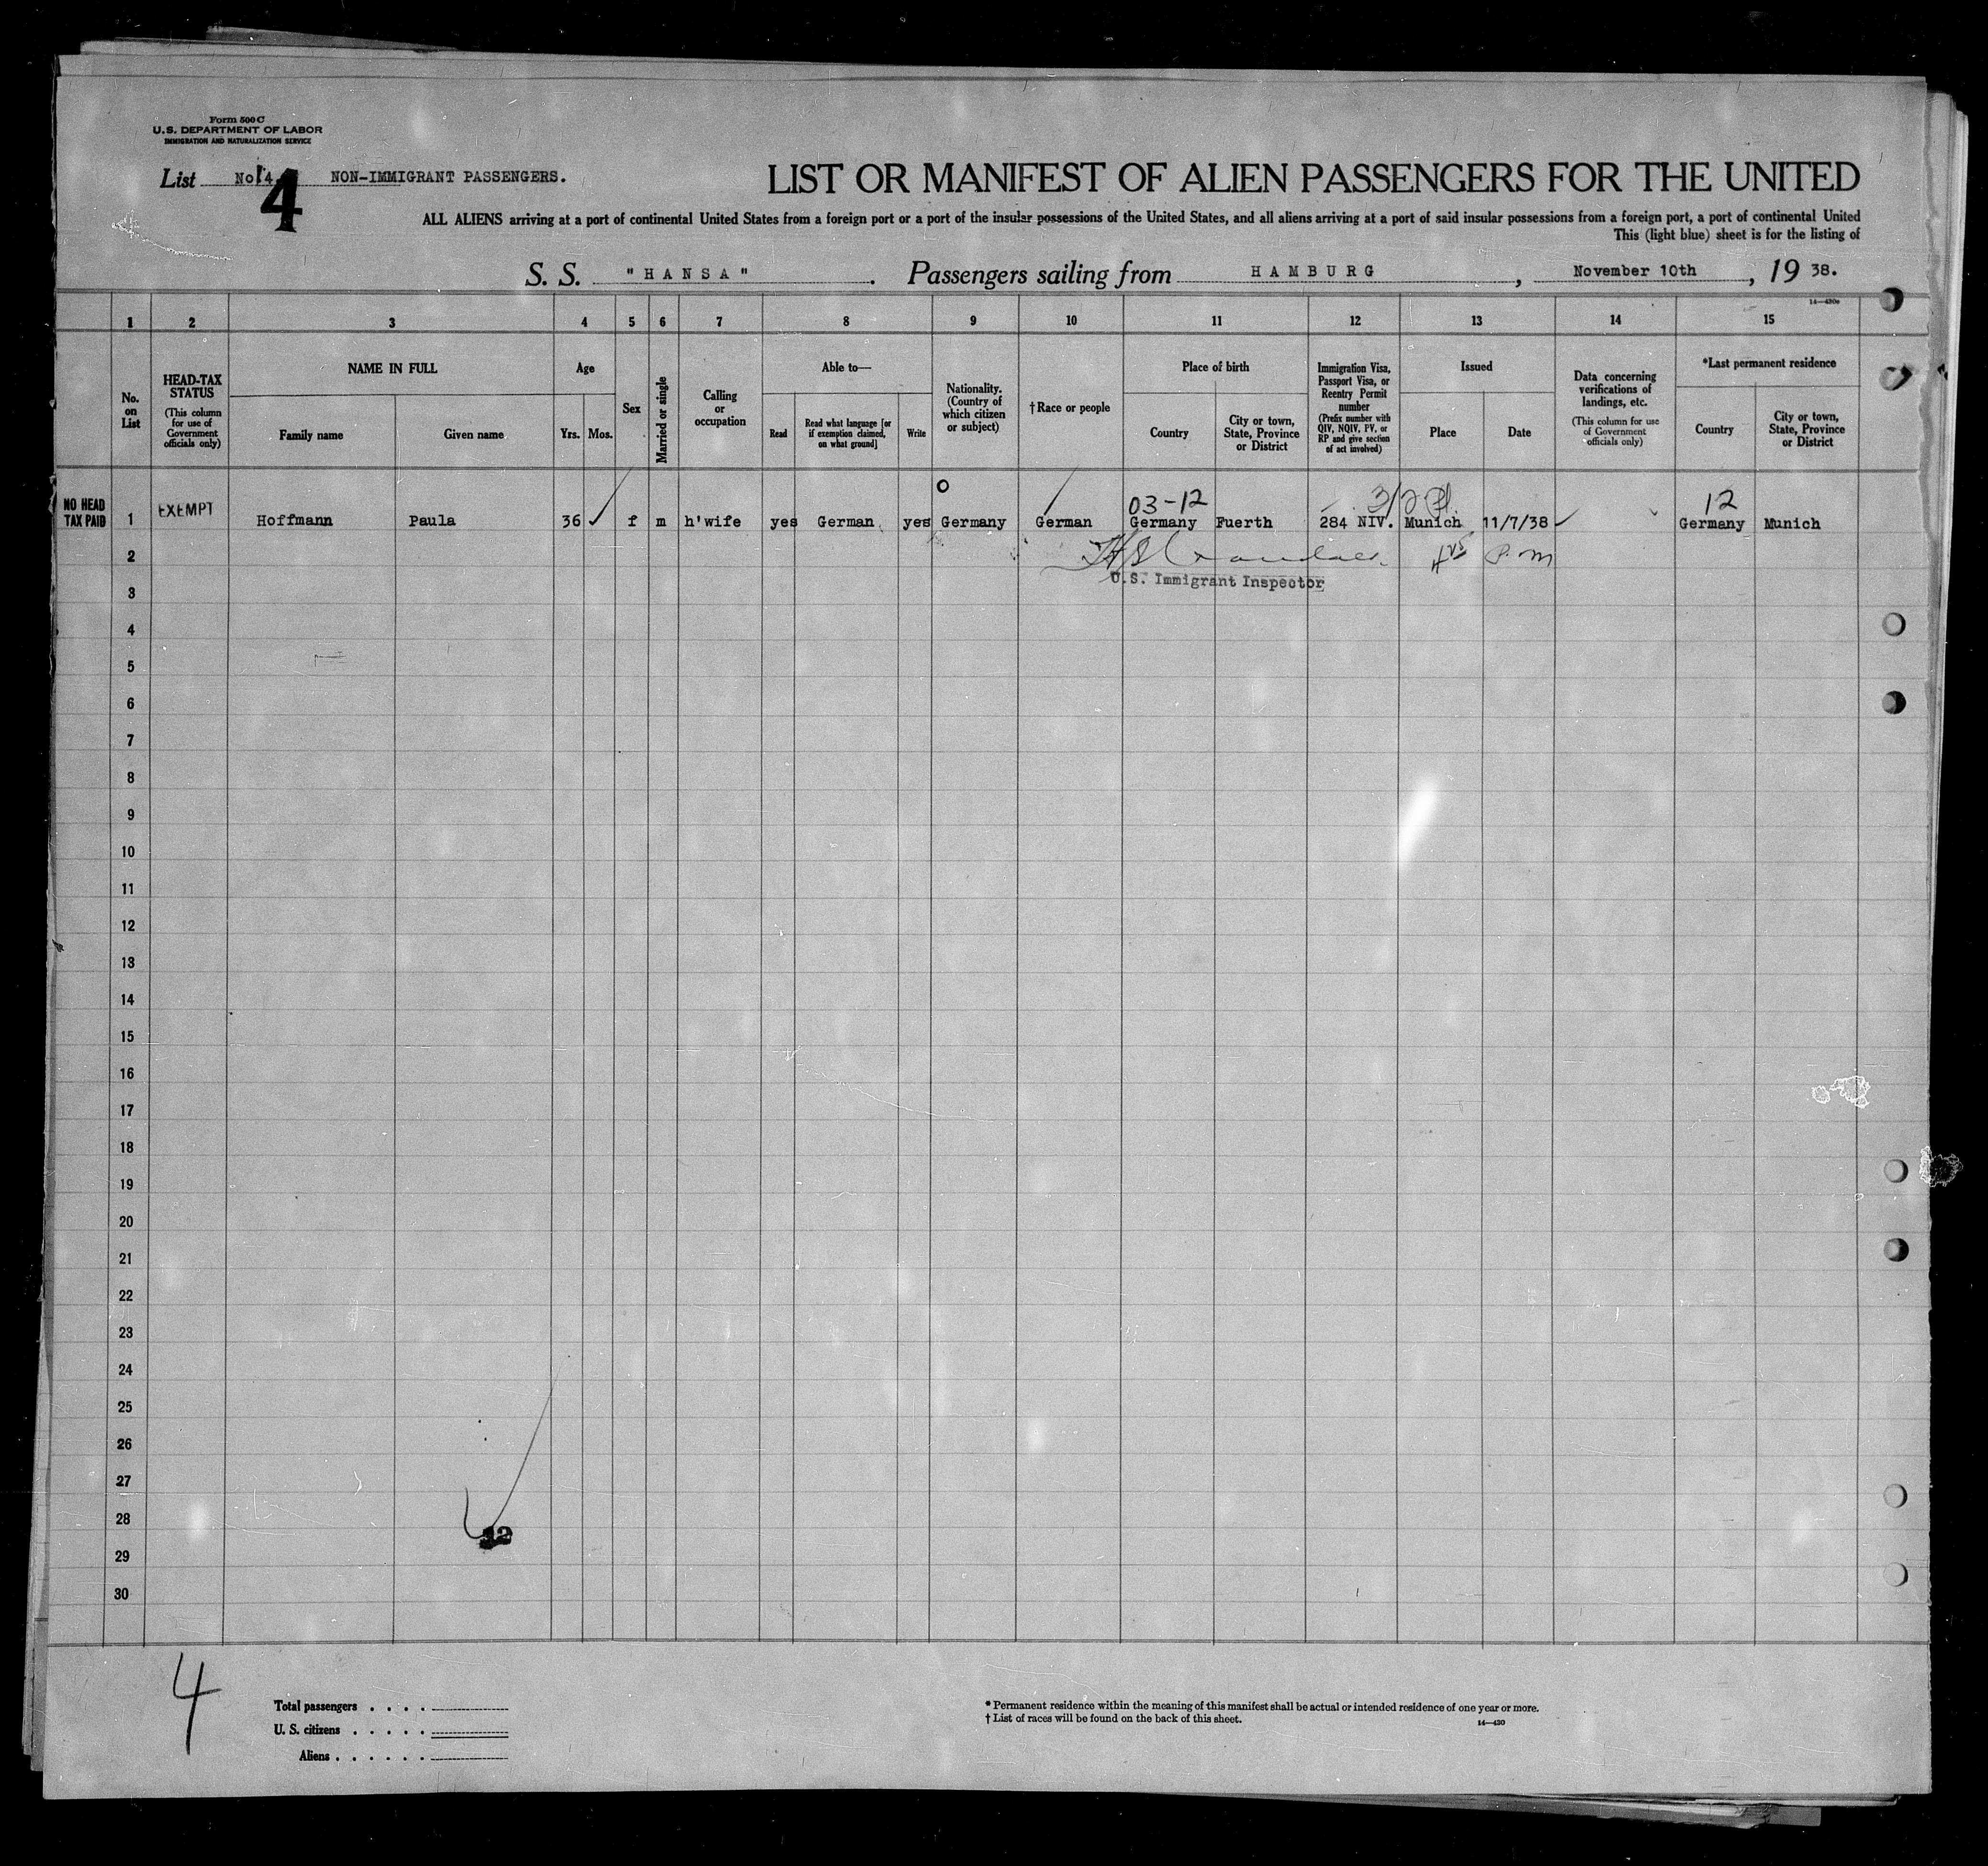 Form 500 C
U.S. DEPARTMENT OF LABOR
IMMIGRATION AND NATURALIZATION SERVICE
List No. 4 NON-IMMIGRANT PASSENGERS.
4
LIST OR MANIFEST OF ALIEN PASSENGERS FOR THE UNITED
ALL ALIENS arriving at a port of continental United States from a foreign port or a port of the insular possessions of the United States, and all aliens arriving at a port of said insular possessions from a foreign port, a port of continental United
This (light blue) sheet is for the listing of
S. S. "HANSA". Passengers sailing from HAMBURG, November 10th, 19 38.
1 2 3 4 5 6 7 8 9 10 11 12 13 14 15
No. on List
HEAD-TAX STATUS
(This column for use of Government officials only)
NAME IN FULL
Family name
Given name
Age
Yrs. Mos.
Sex
Married or single
Calling or occupation
Able to—
Read
Read what language [or if exemption claimed, on what ground]
Write
Nationality. (Country of which citizen or subject)
†Race or people
Place of birth
Country
City or town, State, Province or District
Immigration Visa, Passport Visa, or Reentry Permit number
(Prefix number with QIV, NQIV, PV, or RP and give section of act involved)
Issued
Place
Date
Data concerning verifications of landings, etc.
(This column for use of Government officials only)
*Last permanent residence
Country
City or town, State, Province or District
03-12
12
NO HEAD TAX PAID 1 EXEMPT Hoffmann Paula 36 f m h'wife yes German yes Germany German Germany Fuerth 284 NIV. Munich 11/7/38 Germany Munich
2
U.S. Immigrant Inspector
3
4
5
6
7
8
9
10
11
12
13
14
15
16
17
18
19
20
21
22
23
24
25
26
27
28
29
30
4
Total passengers
U. S. citizens
Aliens
* Permanent residence within the meaning of this manifest shall be actual or intended residence of one year or more.
† List of races will be found on the back of this sheet.
14—430